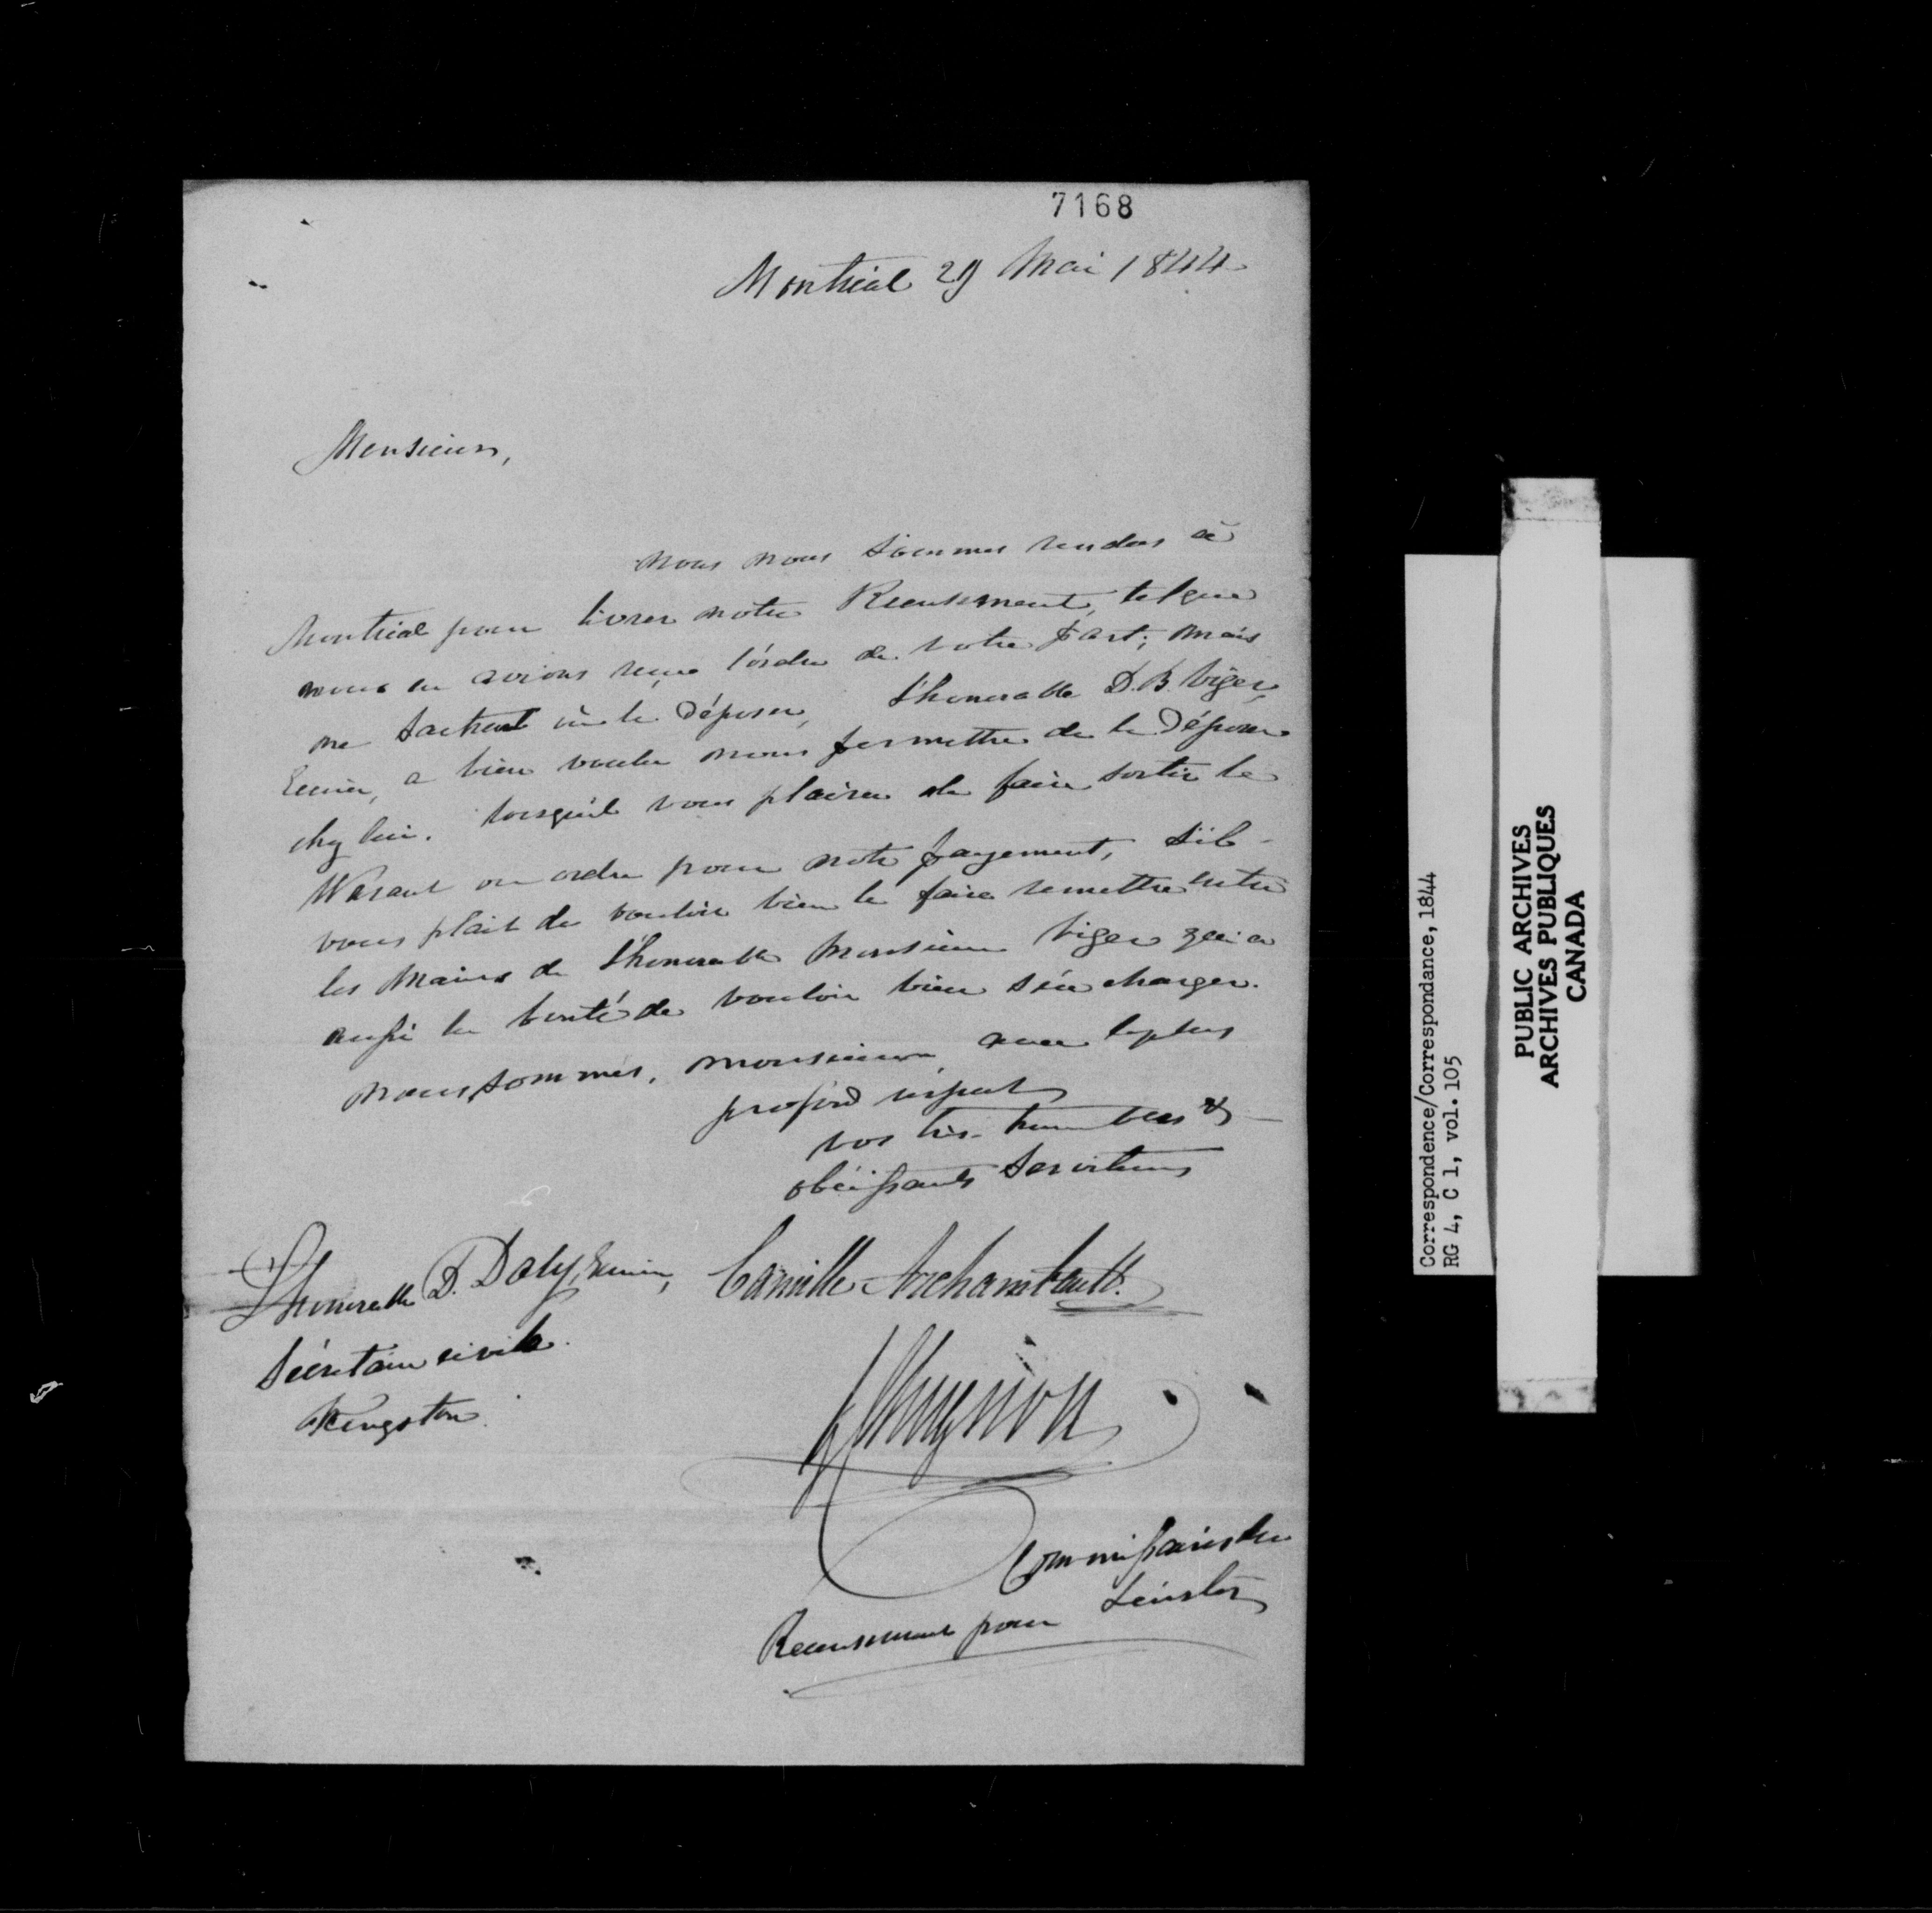 7168
Montréal 29 Mai 1844
Monsieur,
nous nous sommes rendus à
Montréal pour livrer notre Recensement, tel que
nous en avions reçu l'ordre de votre part; mais
ne sachant où le déposer, l'honorable D. B. Viger,
Ecuier, a bien voulu nous permettre de le déposer
chez lui. Lorsqu'il vous plaira de faire sortir le
Warant ou ordre pour notre payement, s'il
vous plait de vouloir bien le faire remettre entre
les mains de l'honorable Monsieur Viger qui a
aussi la bonté de vouloir bien s'en charger.
nous sommes, monsieur, avec le plus
profond respect
vos très humbles &
obéissants Serviteurs
L'honorable D. Daly, Ecuier,
Sécretaire civile
Kingston
Camille Archambault
Commissaires du
Recensement pour Leinster
Correspondence/Correspondance, 1844
RG 4, C 1, vol. 105
PUBLIC ARCHIVES
ARCHIVES PUBLIQUES
CANADA